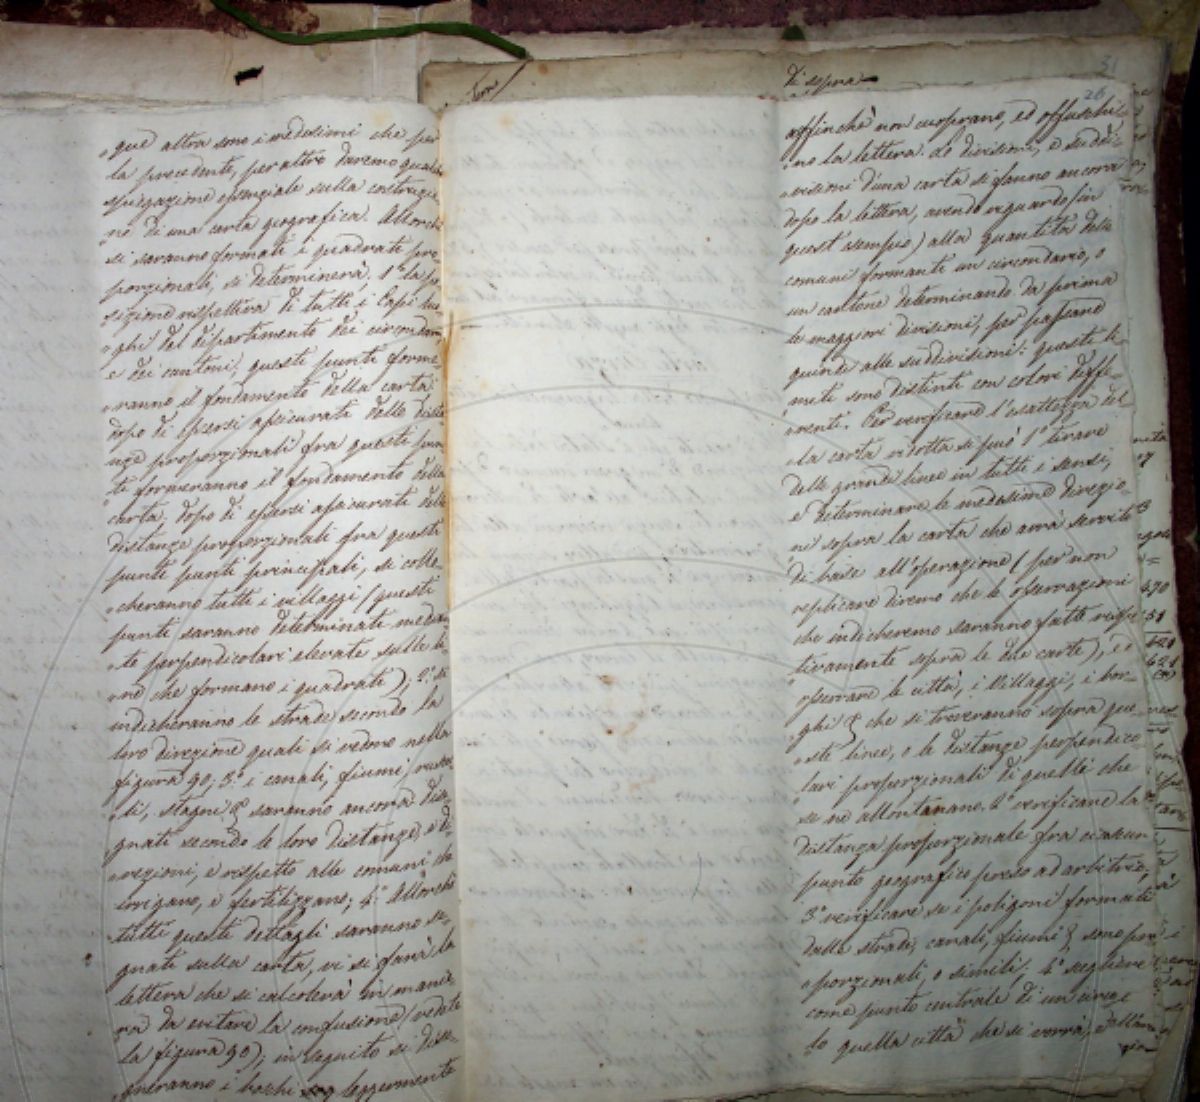 que altra sono i medesimi che per
la precedente, per altro daremo qualche
spiegazione essenziale sulla costruzio
ne di una carta geografica. Allorchè
si saranno formati i quadrati pro
porzionali, si determinerà, 1° la po
sizione rispettiva di tutti i Capi luo
ghi del dipartimento dei circondari
e dei cantoni, questi punti forme
ranno il fondamento della carta
dopo di essersi assicurati delle dista
nze proporzionali fra questi pun
ti formeranno il fondamento della
carta, dopo di essersi assicurati delle
distanze proporzionali fra questi
punti punti principali, si collo
cheranno tutti i villaggi (questi
punti saranno determinati median
te perpendicolari elevate sulle li
nee che formano i quadrati); 2° si
indicheranno le strade secondo la
loro direzione quali si vedono nella
figura 90; 3° i canali, fiumi, rusce
li, stagni & saranno ancora dise
gnati secondo le loro distanze, e di
rezioni, e rispetto alle comuni che
irrigano, e fertilizzano; 4° Allorchè
tutti questi dettagli saranno se
gnati sulla carta, vi si farà la
lettera che si calcolerà in manie
ra da evitare la confusione (vedete
la figura 90); in seguito si dise
gneranno i boschi leggermente
di sopra
31
26
affinchè non cuoprano, ed offuschi
no la lettera. Le divisioni, e suddi
visioni d'una carta si fanno ancora
dopo la lettera, avendo riguardo (in
quest'esempio) alla quantità delle
comuni formanti un circondario, o
un cantone determinando da prima
le maggiori divisioni, per passare
quindi alle suddivisioni: questi li
miti sono distinti con colori diffe
renti. Per verificare l'esattezza del
la carta ridotta si può 1° tirare
delle grandi linee in tutti i sensi,
e determinare le medesime direzio
ni sopra la carta che avrà servito
di base all'operazione (per non
replicare diremo che le osservazioni
che indicheremo saranno fatte rispet
tivamente sopra le due carte), ed
osservare le città, i villaggi, i bor
ghi & che si troveranno sopra que
ste linee, o le distanze perpendico
lari proporzionali di quelli che
se ne allontanano. 2° verificare la
distanza proporzionale fra ciascun
punto geografico preso ad arbitrio,
3° verificare se i poligoni formati
dalle strade, canali, fiumi &, sono pro
porzionali, o simili: 4° scegliere
come punto centrale di un circo
lo quella città che si vorrà, e dall'una